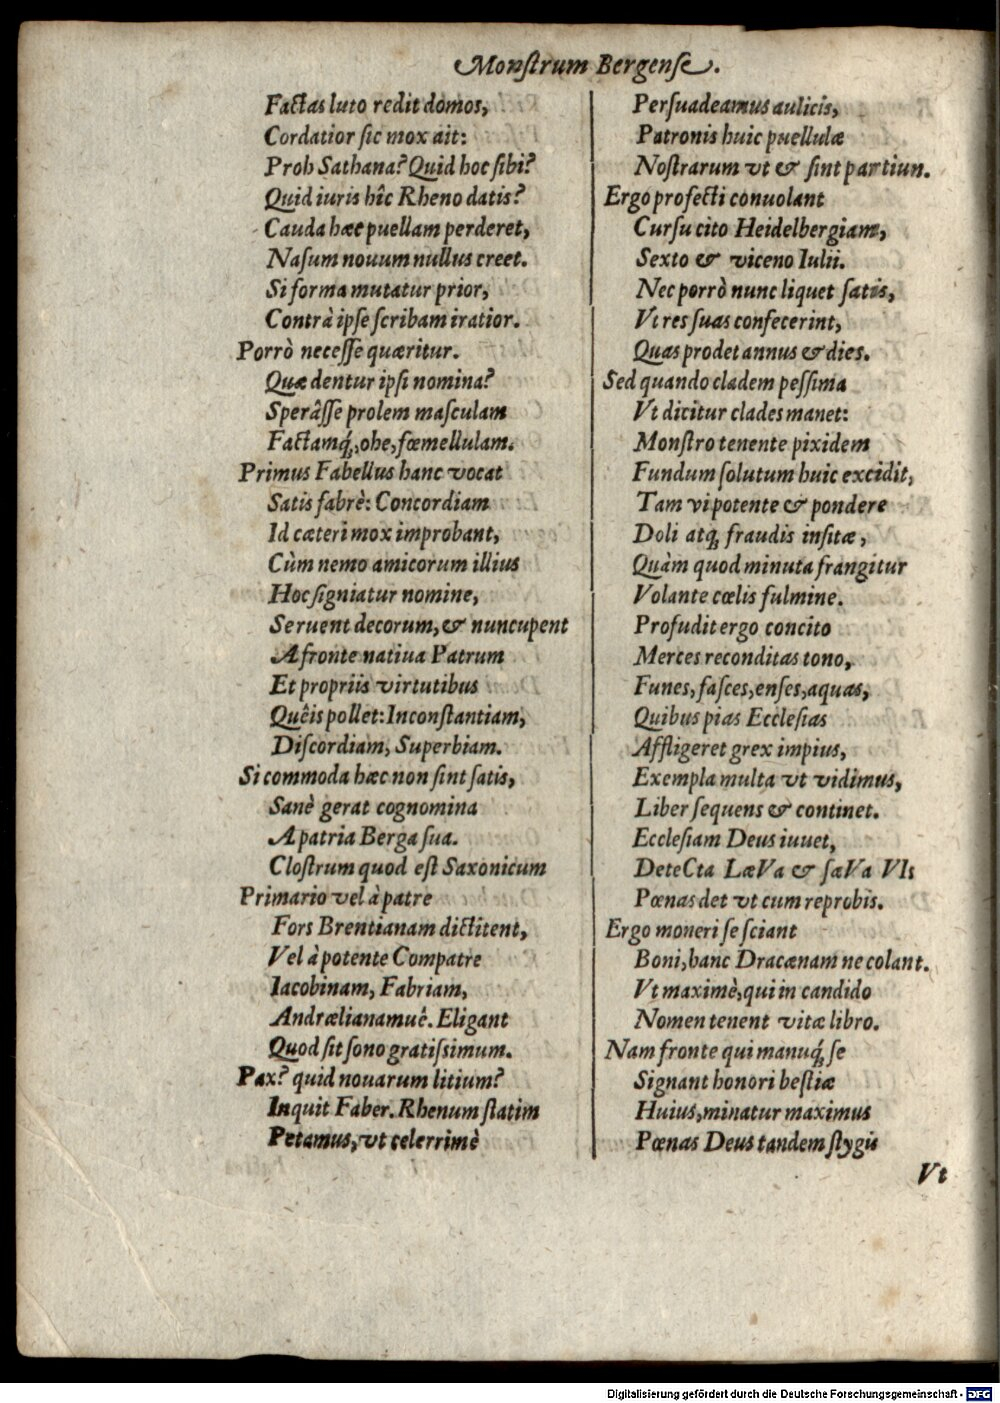 Monſtrum Bergenſe.
Factas luto redit domos,
Cordatior ſic mox ait:
Proh Sathana? Quid hoc ſibi?
Quid iuris hîc Rheno datis?
Cauda hæc puellam perderet,
Naſum nouum nullus creet.
Si forma mutatur prior,
Contrà ipſe ſcribam iratior.
Porrò neceſſe quæritur.
Quæ dentur ipſi nomina?
Sperâſſe prolem maſculam
Factamq́;, ohe, fœmellulam.
Primus Fabellus hanc vocat
Satis fabrè: Concordiam
Id cæteri mox improbant,
Cùm nemo amicorum illius
Hoc ſigniatur nomine,
Seruent decorum, & nuncupent
A fronte natiua Patrum
Et propriis virtutibus
Quêis pollet: Inconſtantiam,
Diſcordiam, Superbiam.
Si commoda hæc non ſint ſatis,
Sanè gerat cognomina
A patria Berga ſua.
Cloſtrum quod eſt Saxonicum
Primario vel à patre
Fors Brentianam dictitent,
Vel à potente Compatre
Iacobinam, Fabriam,
Andrælianamuê. Eligant
Quod ſit ſono gratiſsimum.
Pax? quid nouarum litium?
Inquit Faber. Rhenum ſtatim
Petamus, vt celerrimè
Perſuadeamus aulicis,
Patronis huic puellulæ
Noſtrarum vt & ſint partiun.
Ergo profecti conuolant
Curſu cito Heidelbergiam,
Sexto & viceno Iulii.
Nec porrò nunc liquet ſatis,
Vt res ſuas confecerint,
Quas prodet annus & dies.
Sed quando cladem peſſima
Vt dicitur clades manet:
Monſtro tenente pixidem
Fundum ſolutum huic excidit,
Tam vi potente & pondere
Doli atq; fraudis inſitæ,
Quàm quod minuta frangitur
Volante cœlis fulmine.
Profudit ergo concito
Merces reconditas tono,
Funes, faſces, enſes, aquas,
Quibus pias Eccleſias
Affligeret grex impius,
Exempla multa vt vidimus,
Liber ſequens & continet.
Eccleſiam Deus iuuet,
DeteCta LæVa & ſæVa VIs
Pœnas det vt cum reprobis.
Ergo moneri ſe ſciant
Boni, hanc Dracænam ne colant.
Vt maximè, qui in candido
Nomen tenent vitæ libro.
Nam fronte qui manuq́; ſe
Signant honori beſtiæ
Huius, minatur maximus
Pœnas Deus tandem ſtygis
Vt
Digitalisierung gefördert durch die Deutsche Forschungsgemeinschaft - DFG